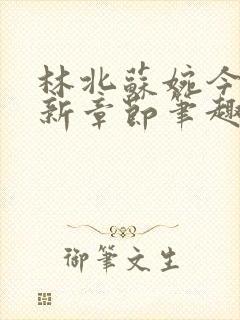 林北蘇婉今
新章節筆趣
御筆文生